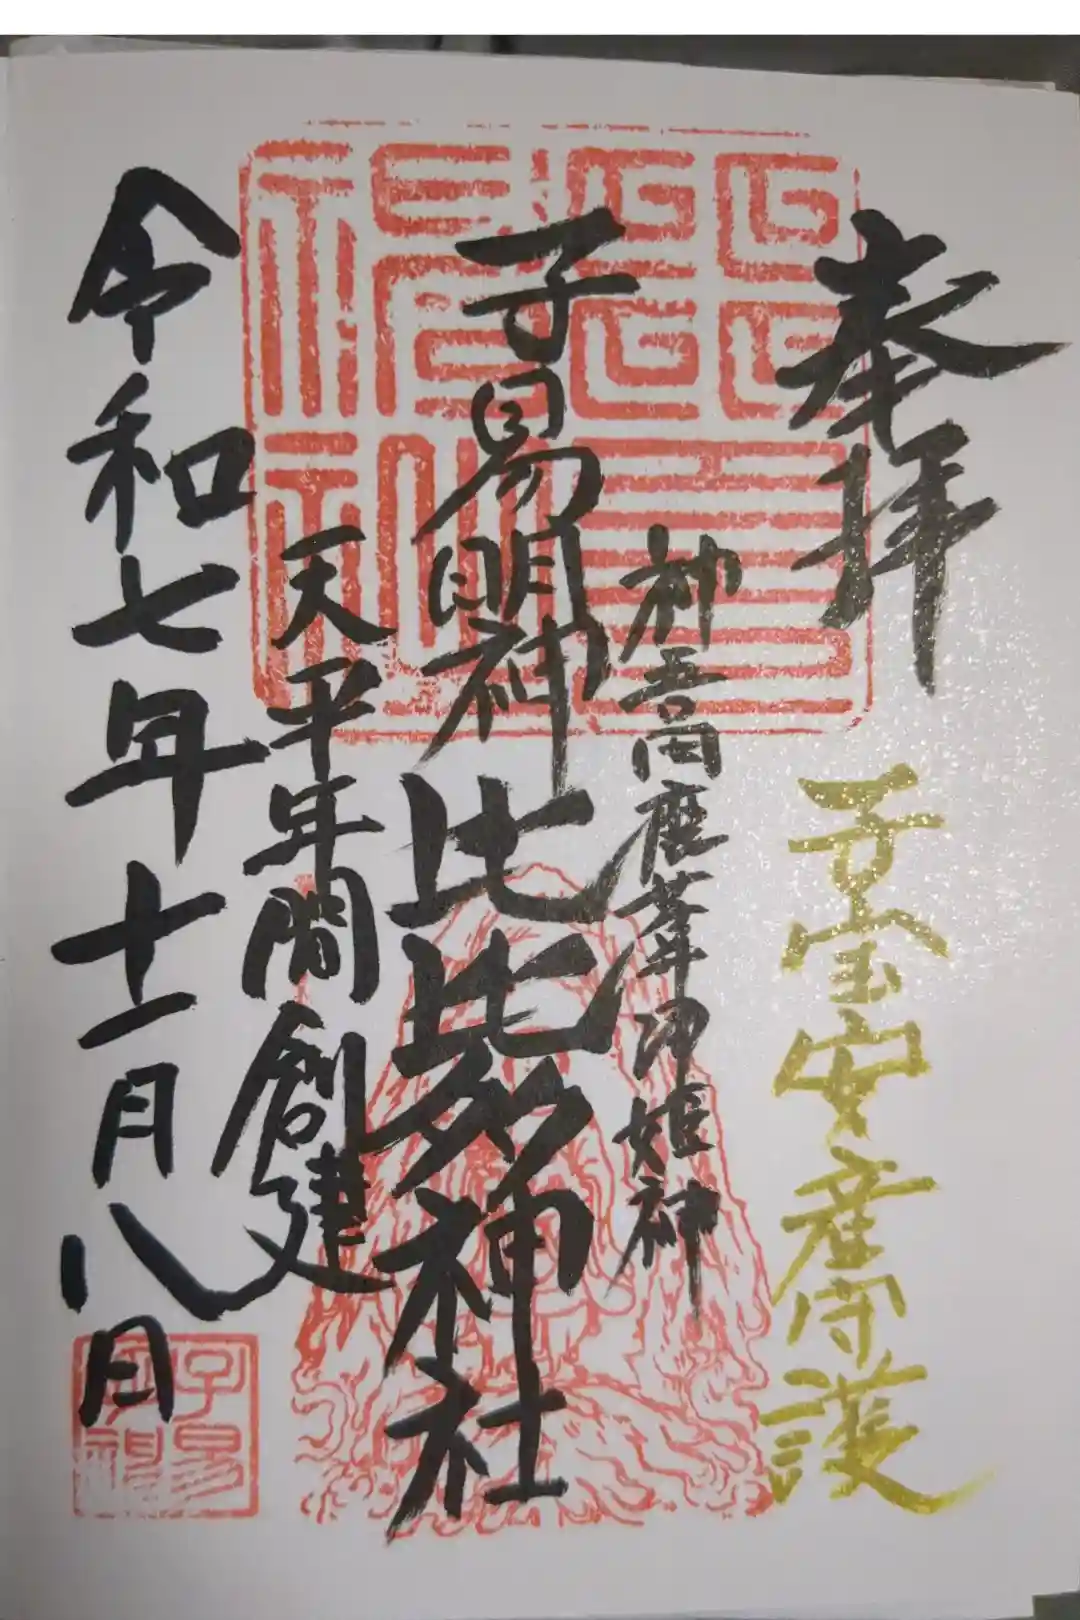 奉拝
子宝安産守護
神吾田鹿葦津姫神
子易明神
比比多神社
天平年間創建
令和七年十一月八日
子易